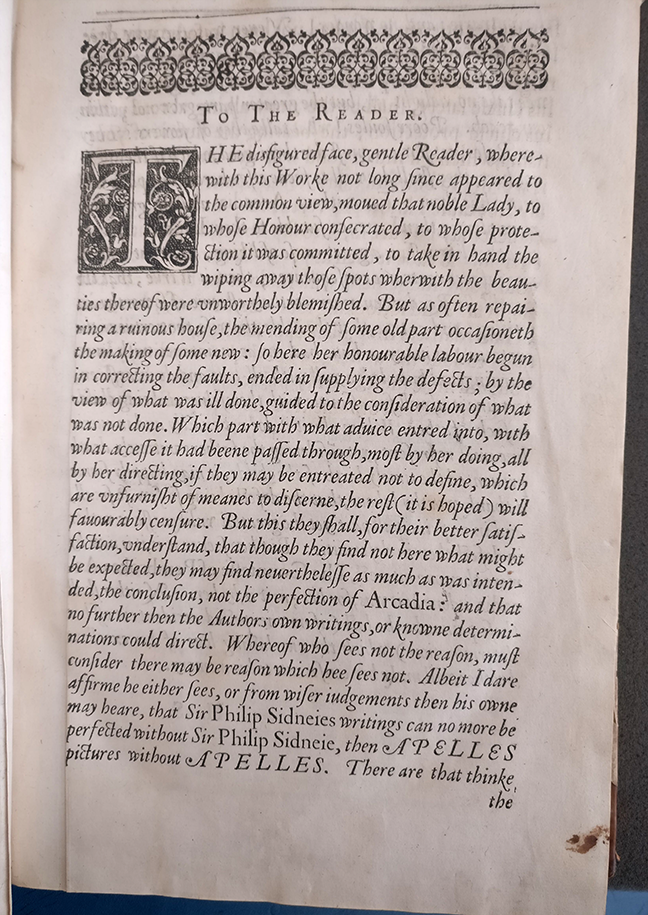 TO THE READER.
THE disfigured face, gentle Reader, where-
with this Worke not long since appeared to
the common view, moued that noble Lady, to
whose Honour consecrated, to whose prote-
ction it was committed, to take in hand the
wiping away those spots wherwith the beau-
ties thereof were vnworthely blemished. But as often repai-
ring a ruinous house, the mending of some old part occasioneth
the making of some new: so here her honourable labour begun
in correcting the faults, ended in supplying the defects; by the
view of what was ill done, guided to the consideration of what
was not done. Which part with what aduice entred into, with
what accesse it had beene passed through, most by her doing, all
by her directing, if they may be entreated not to define, which
are vnfurnisht of meanes to discerne, the rest (it is hoped) will
fauourably censure. But this they shall, for their better satis-
faction, vnderstand, that though they find not here what might
be expected, they may find neuerthelesse as much as was inten-
ded, the conclusion, not the perfection of Arcadia: and that
no further then the Authors own writings, or knowne determi-
nations could direct. Whereof who sees not the reason, must
consider there may be reason which hee sees not. Albeit I dare
affirme he either sees, or from wiser iudgements then his owne
may heare, that Sir Philip Sidneies writings can no more be
perfected without Sir Philip Sidneie, then APELLES
pictures without APELLES. There are that thinke
the